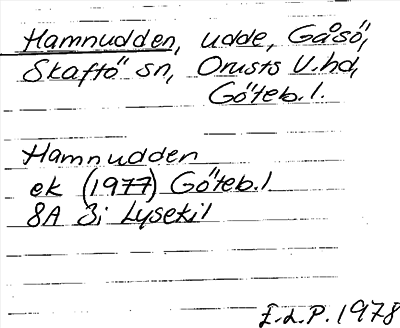 Hamnudden, udde, Gåsö,
Skaftö sn, Orusts V.hd,
Göteb.l.
Hamnudden
ek (1977) Göteb.l
8A 3i Lysekil
E.L.P. 1978